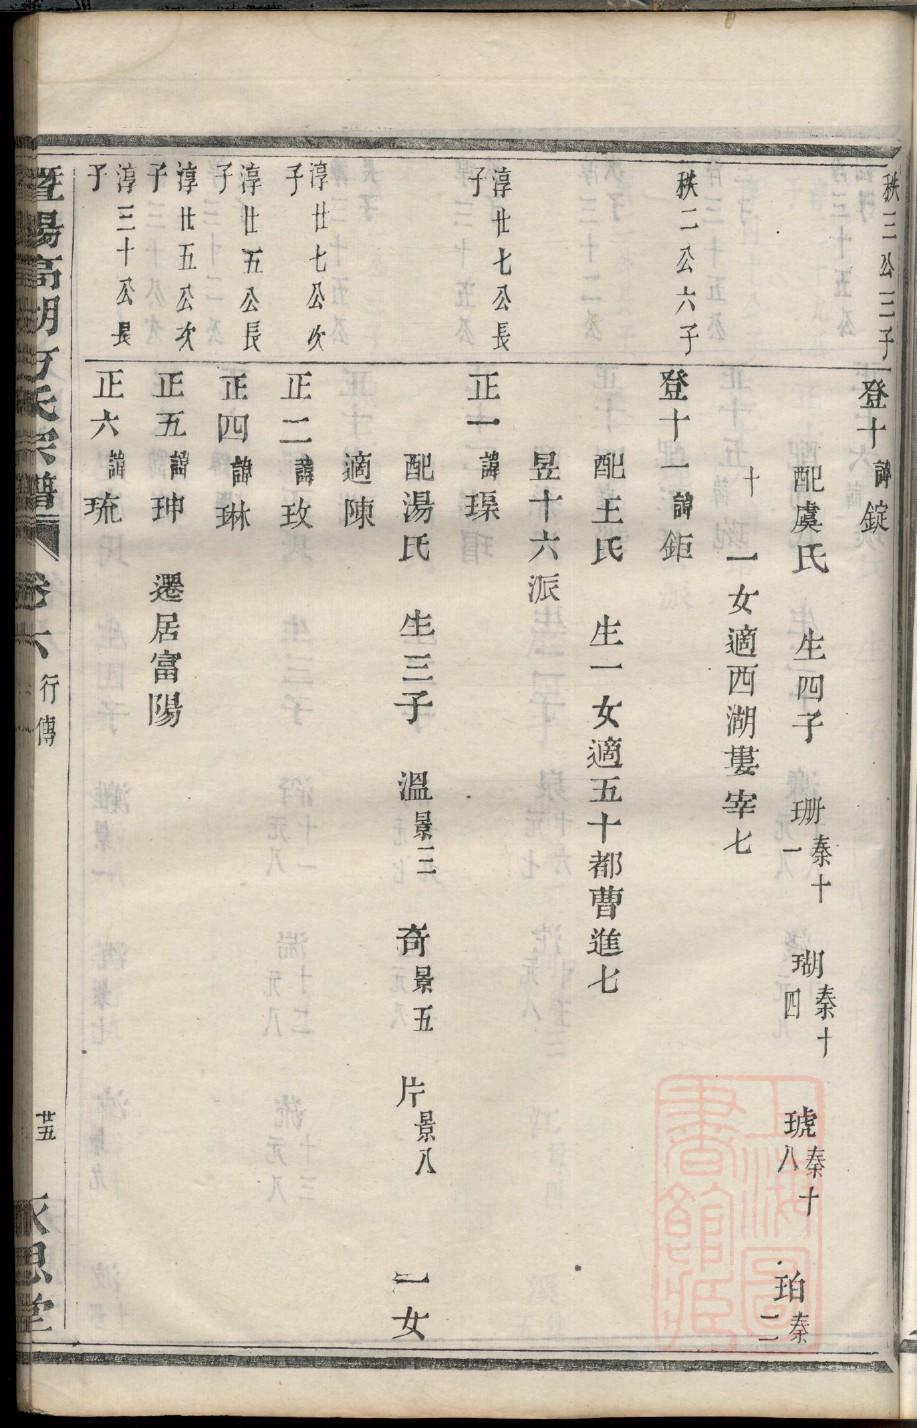 秩三公三子
登十諱錠
配虞氏 生四子 珊秦十一 瑚秦十四 琥秦十八 珀秦二
十 一女適西湖婁宰七
秩二公六子
登十一諱鉅
配王氏 生一女適五十都曹進七
昱十六派
淳廿七公長子
正一諱璖
配湯氏 生三子 溫景三 奇景五 片景八 一女
適陳
淳廿七公次子
正二諱玫
淳廿五公長子
正四諱琳
淳廿五公次子
正五諱珅 遷居富陽
淳三十公長子
正六諱琉
暨陽高湖 氏宗譜 卷六 行傳 廿五 永思堂
上海圖書館藏